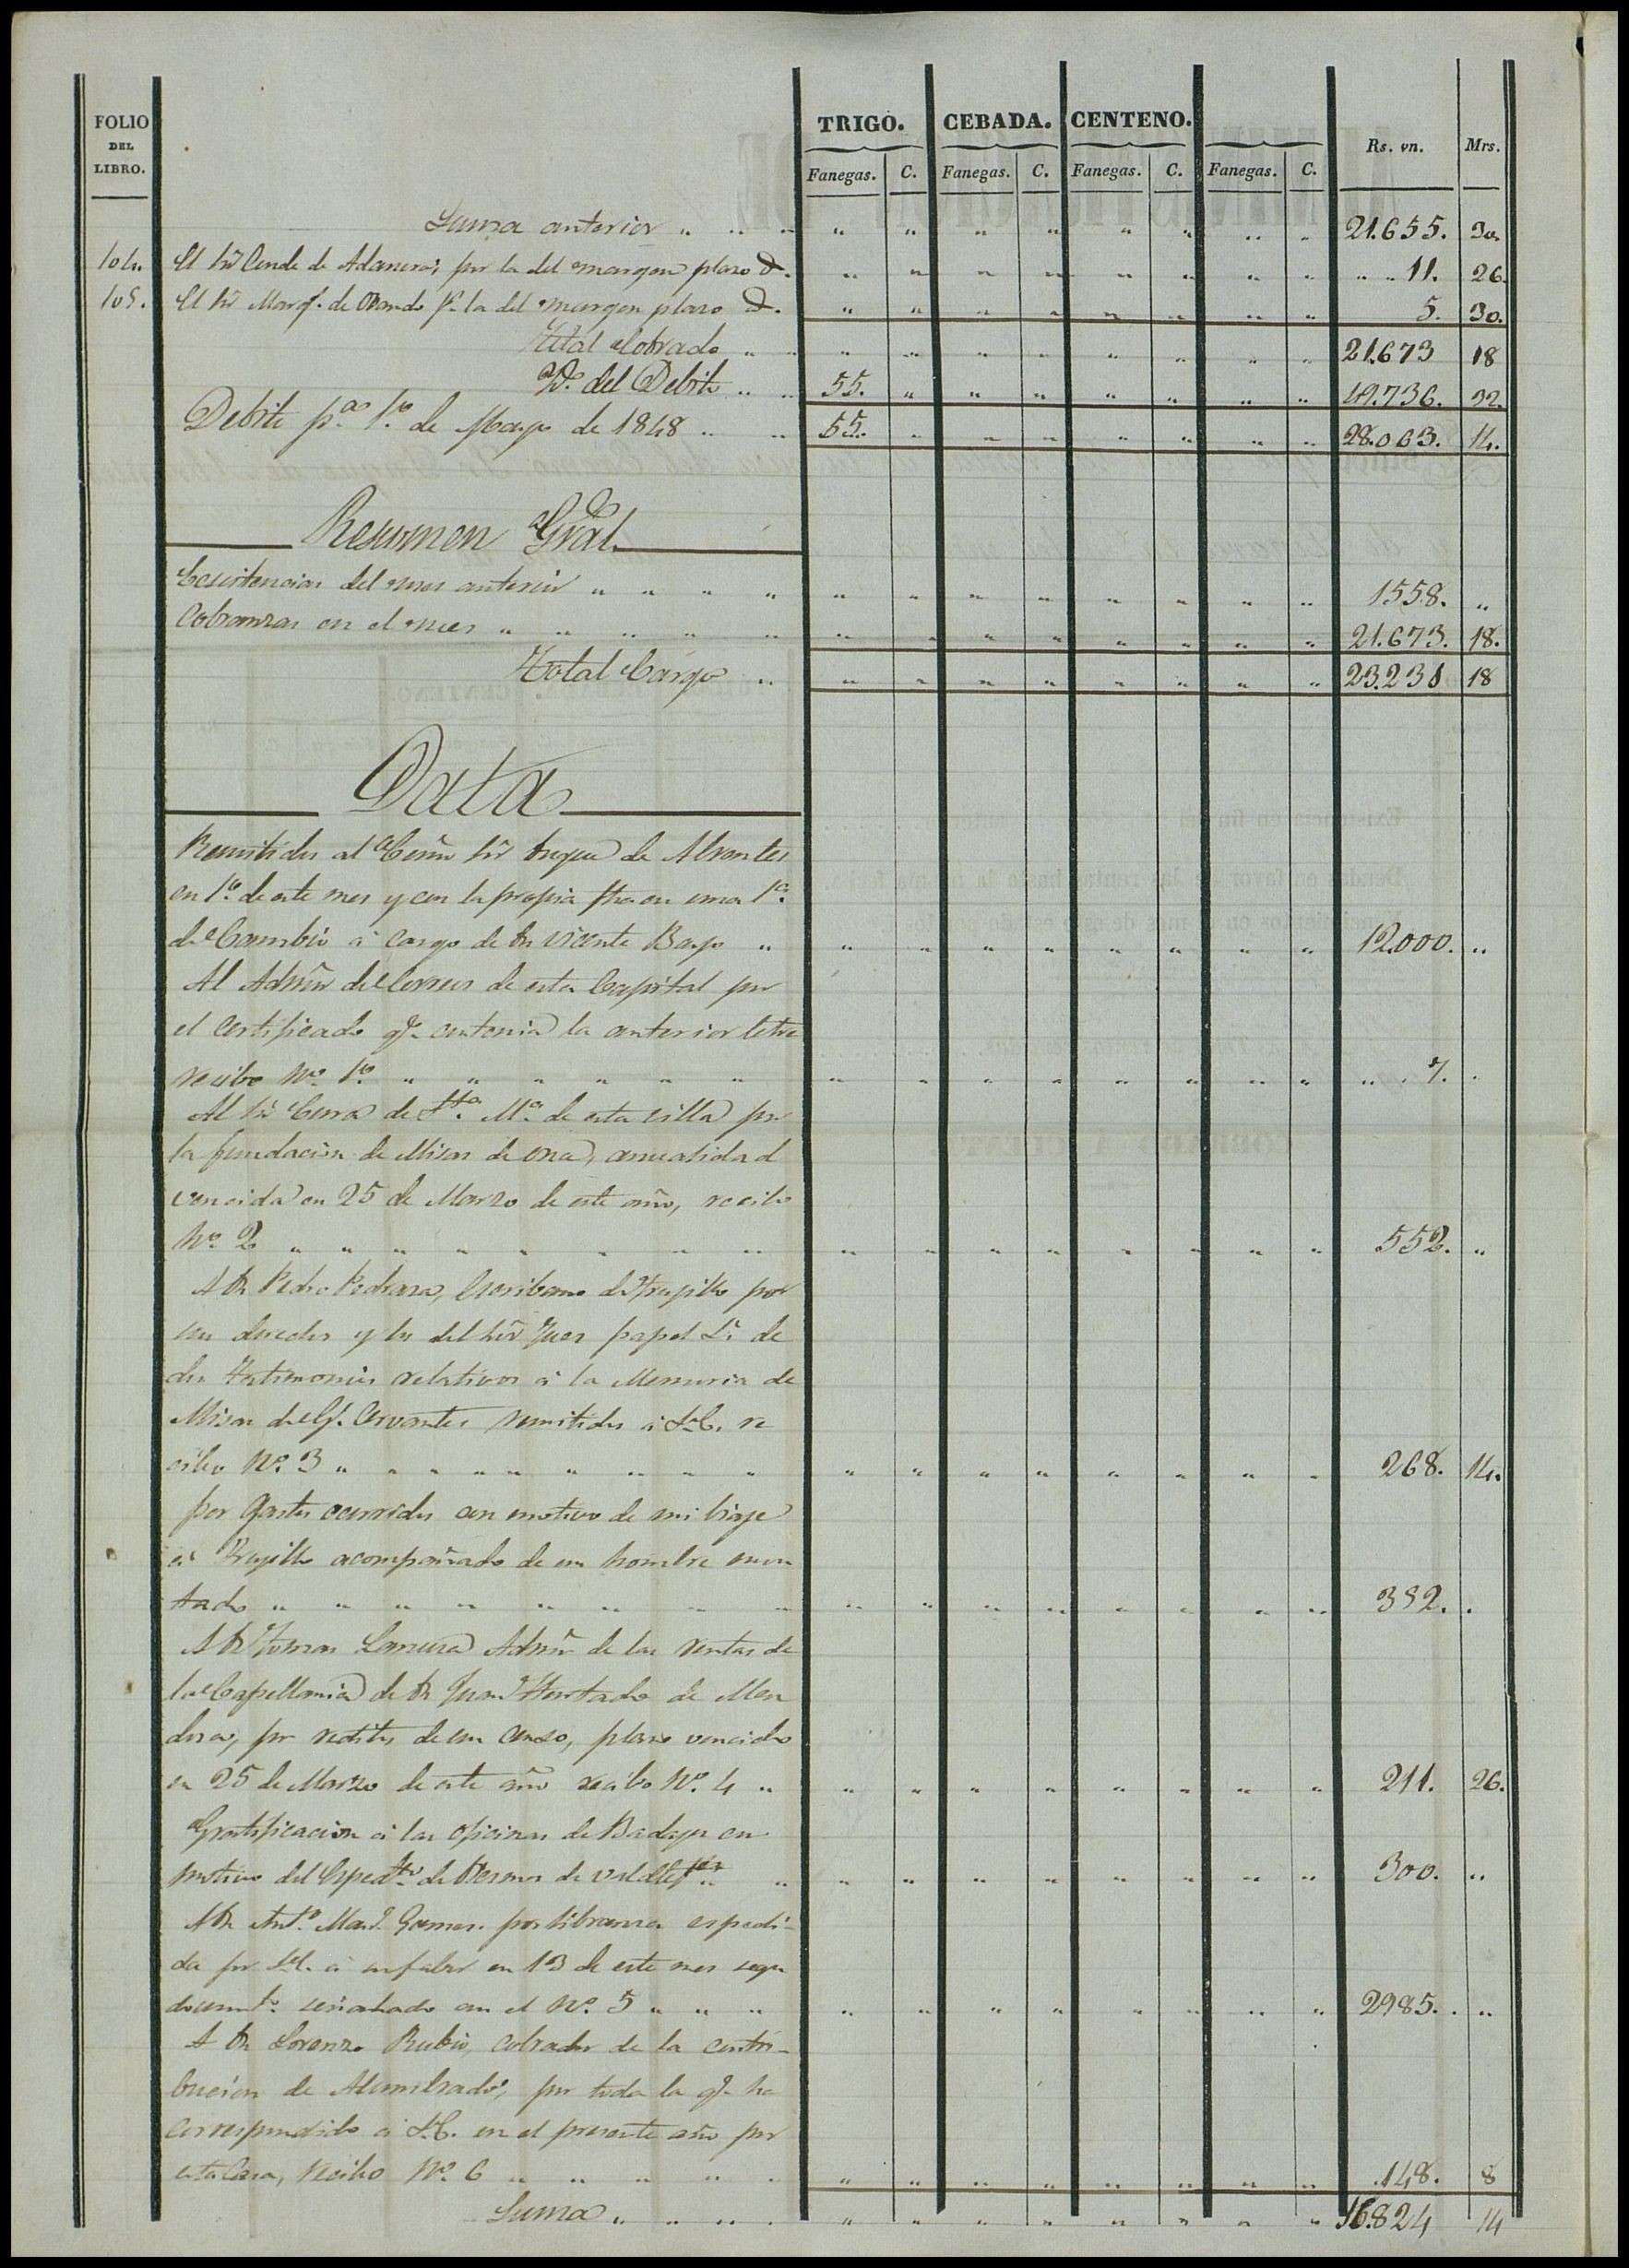 FOLIO DEL LIBRO. TRIGO. CEBADA. CENTENO. Rs. vn. Mrs.
Fanegas. C. Fanegas. C. Fanegas. C. Fanegas. C.
Suma anterior 21.655. 30.
104. El Sr Conde de Adanero, por la del margen plazo 11. 26.
105. El Sr Marqs. de Ovando pr. la del margen plazo 5. 30.
Total Cobrado 21.673 18
Yd. del Debito 55. 49.736. 32.
Debito pa. 1º. de Mayo de 1848 55. 28.063. 14.
Resumen Gral.
Ecsistencias del mes anterior 1558.
Cobranzas en el mes 21.673. 18.
Total Cargo 23.231 18
Data
Remitidos al Ecmo Sr Duque de Abrantes
en 1º. de este mes y con la propia fha en una 1ª.
de Cambio á cargo de Dn Vicente Bayo 12.000.
Al Admor de Correos de esta Capital por
el certificado qe. contenia la anterior letra
recibo Nº. 1º. 7.
Al Sr Cura de Sta. Mª. de esta villa por
la fundacion de Misas de una anualidad
vencida en 25 de Marzo de este año, recibo
Nº 2 552.
A Dn Pedro Pedraza, Escribano de Trujillo por
sus derechos y los del Sor Juez papel Sº. de
dos Testimonios relativos á la Memoria de
Misas de Cervantes remitidos á S.E. re
cibo Nº. 3 268. 14.
por Gastos ocurridos con motivo de mi biaje
á Trujillo acompañado de un hombre mon
tado 352.
A Dn Tomas Admor de las rentas de
la Capellania de Dn Juan Hurtado de Men
doza, por reditos de un censo, plazo vencido
en 25 de Marzo de este año recibo Nº. 4 211. 26.
Gratificacion á las oficinas de Badajoz con
motivo del Espedte. de de 300.
A Dn Antº. Mard. Gomez. por libranza espedi-
da por S.E. á su fabor en 13 de este mes segun
documto. señalado con el Nº. 5 2985.
A Dn Lorenzo Rubio, cobrador de la contri-
bucion de Alumbrado, por toda la qe. ha
correspondido á S.E. en el presente año por
esta Casa, recibo Nº. 6 148. 8
Suma 16.824 14